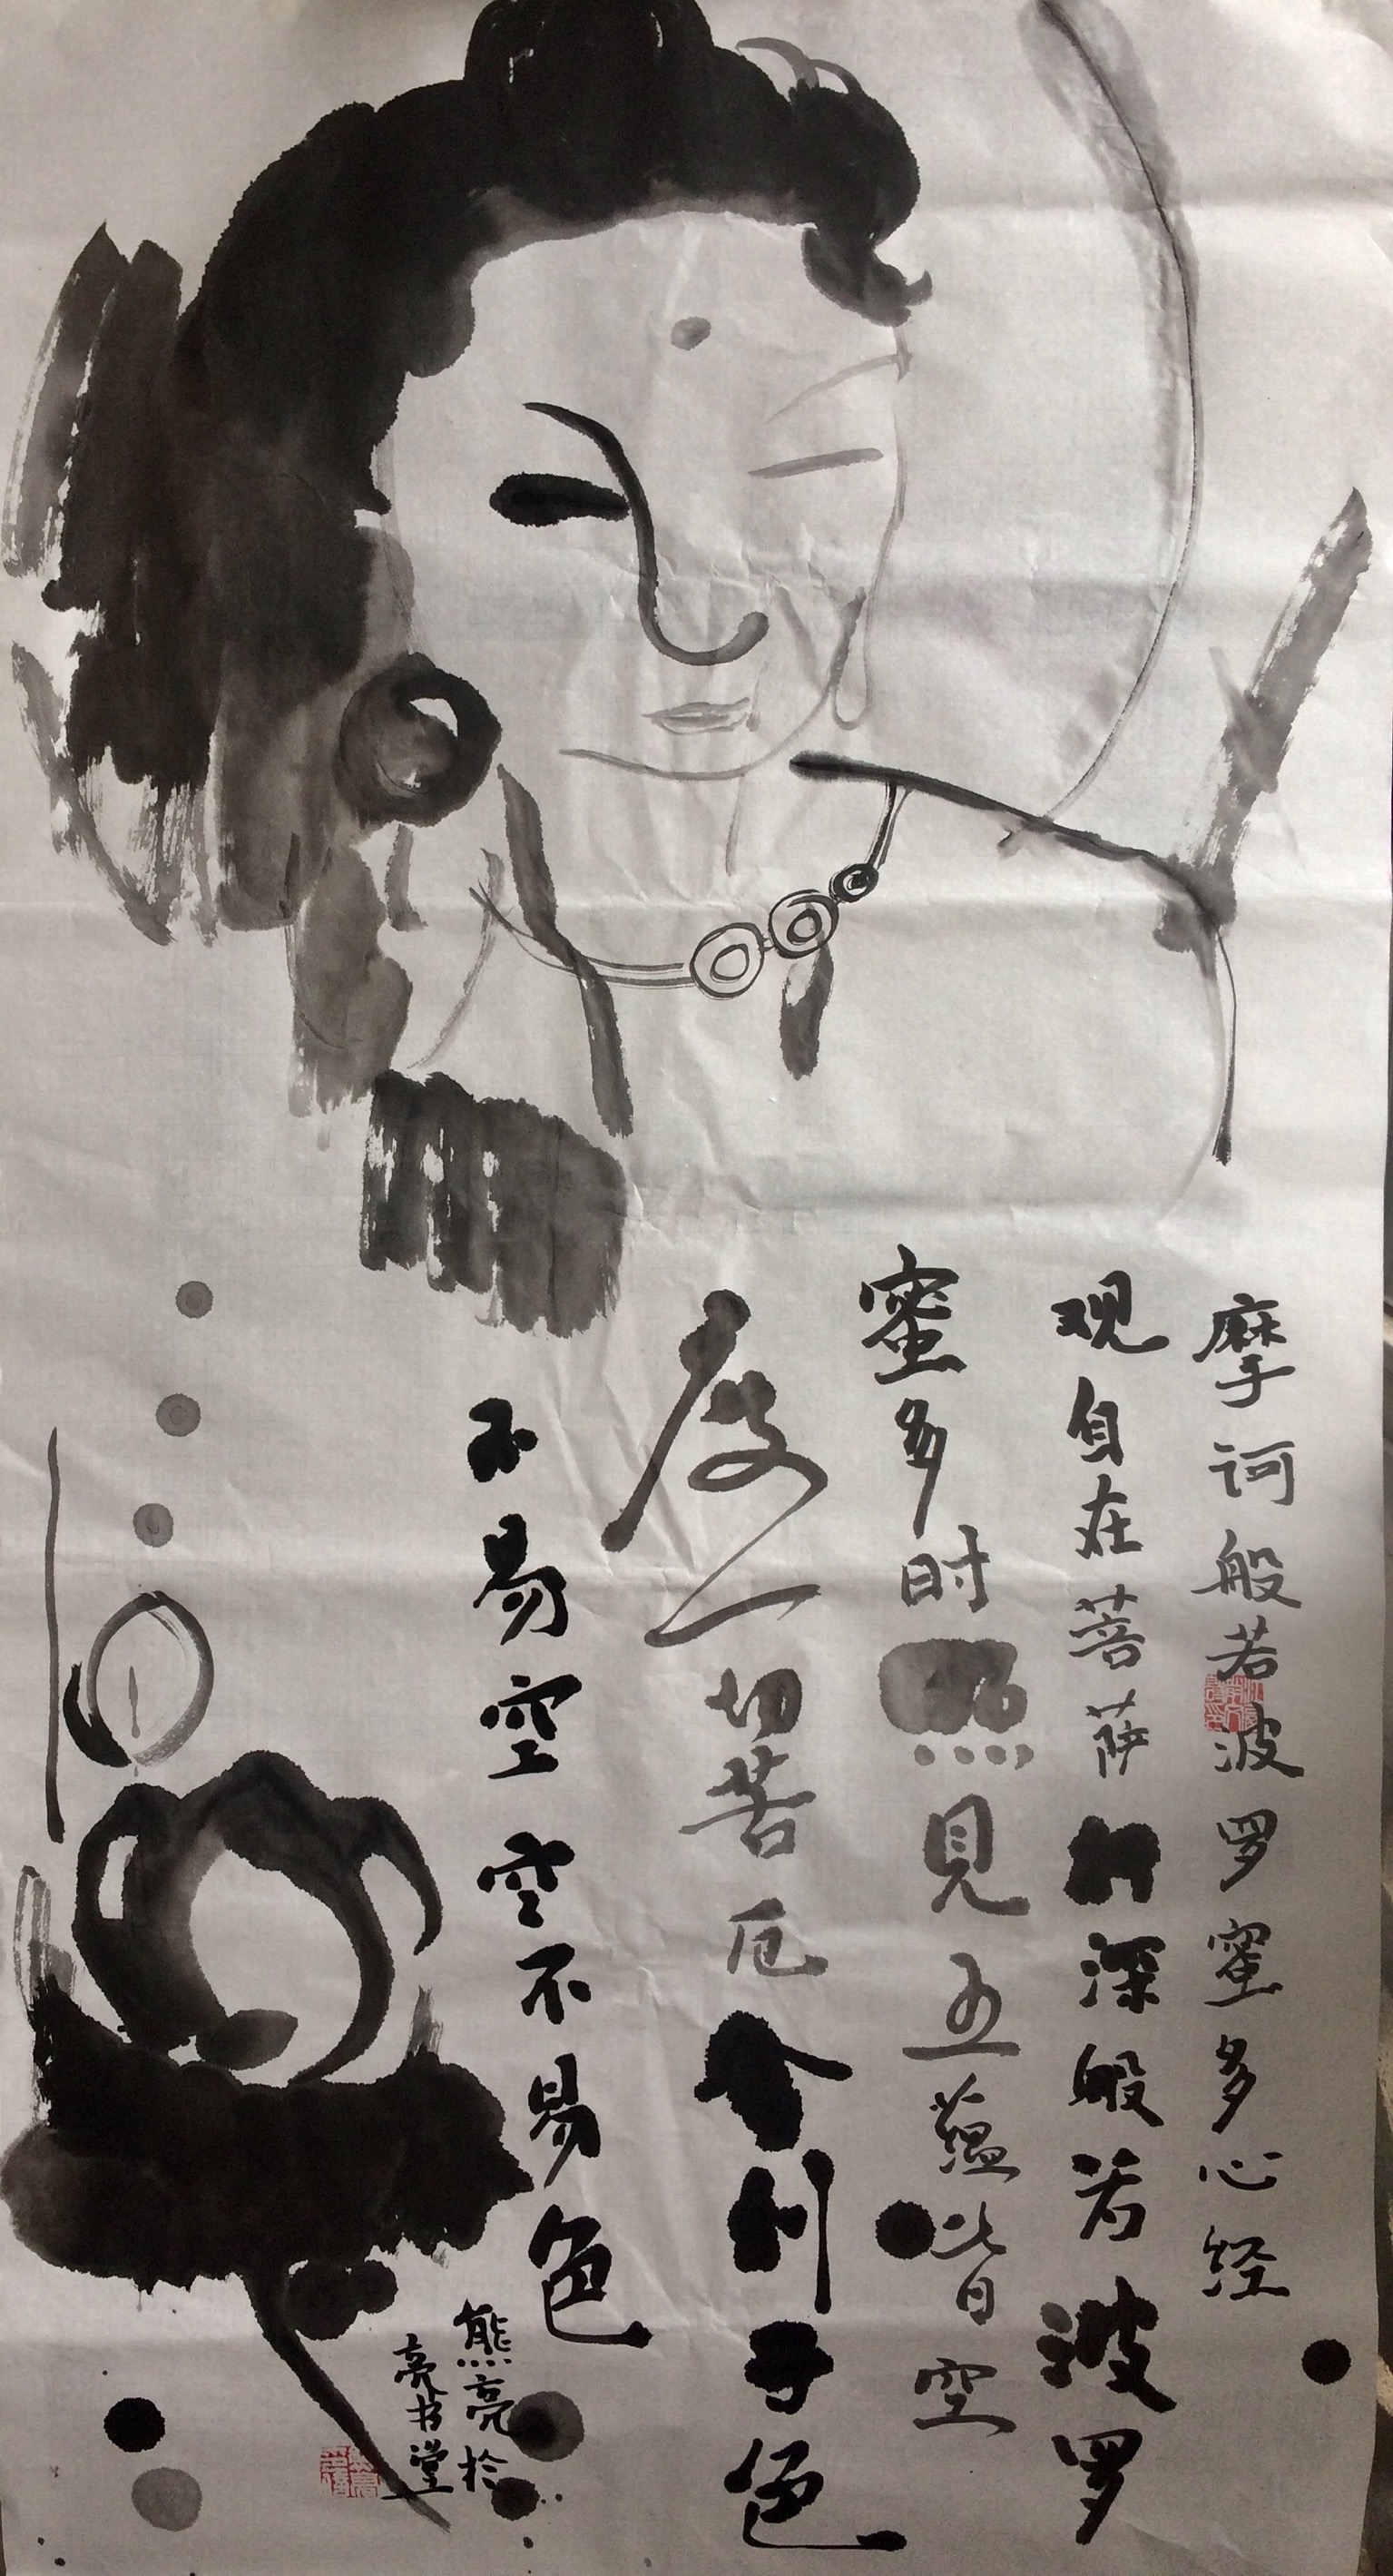 摩诃般若波罗蜜多心经
观自在菩萨行深般若波罗
蜜多时照見五蕴皆空
度一切苦厄舍利子色
不易空空不易色
熊亮於
亮书堂